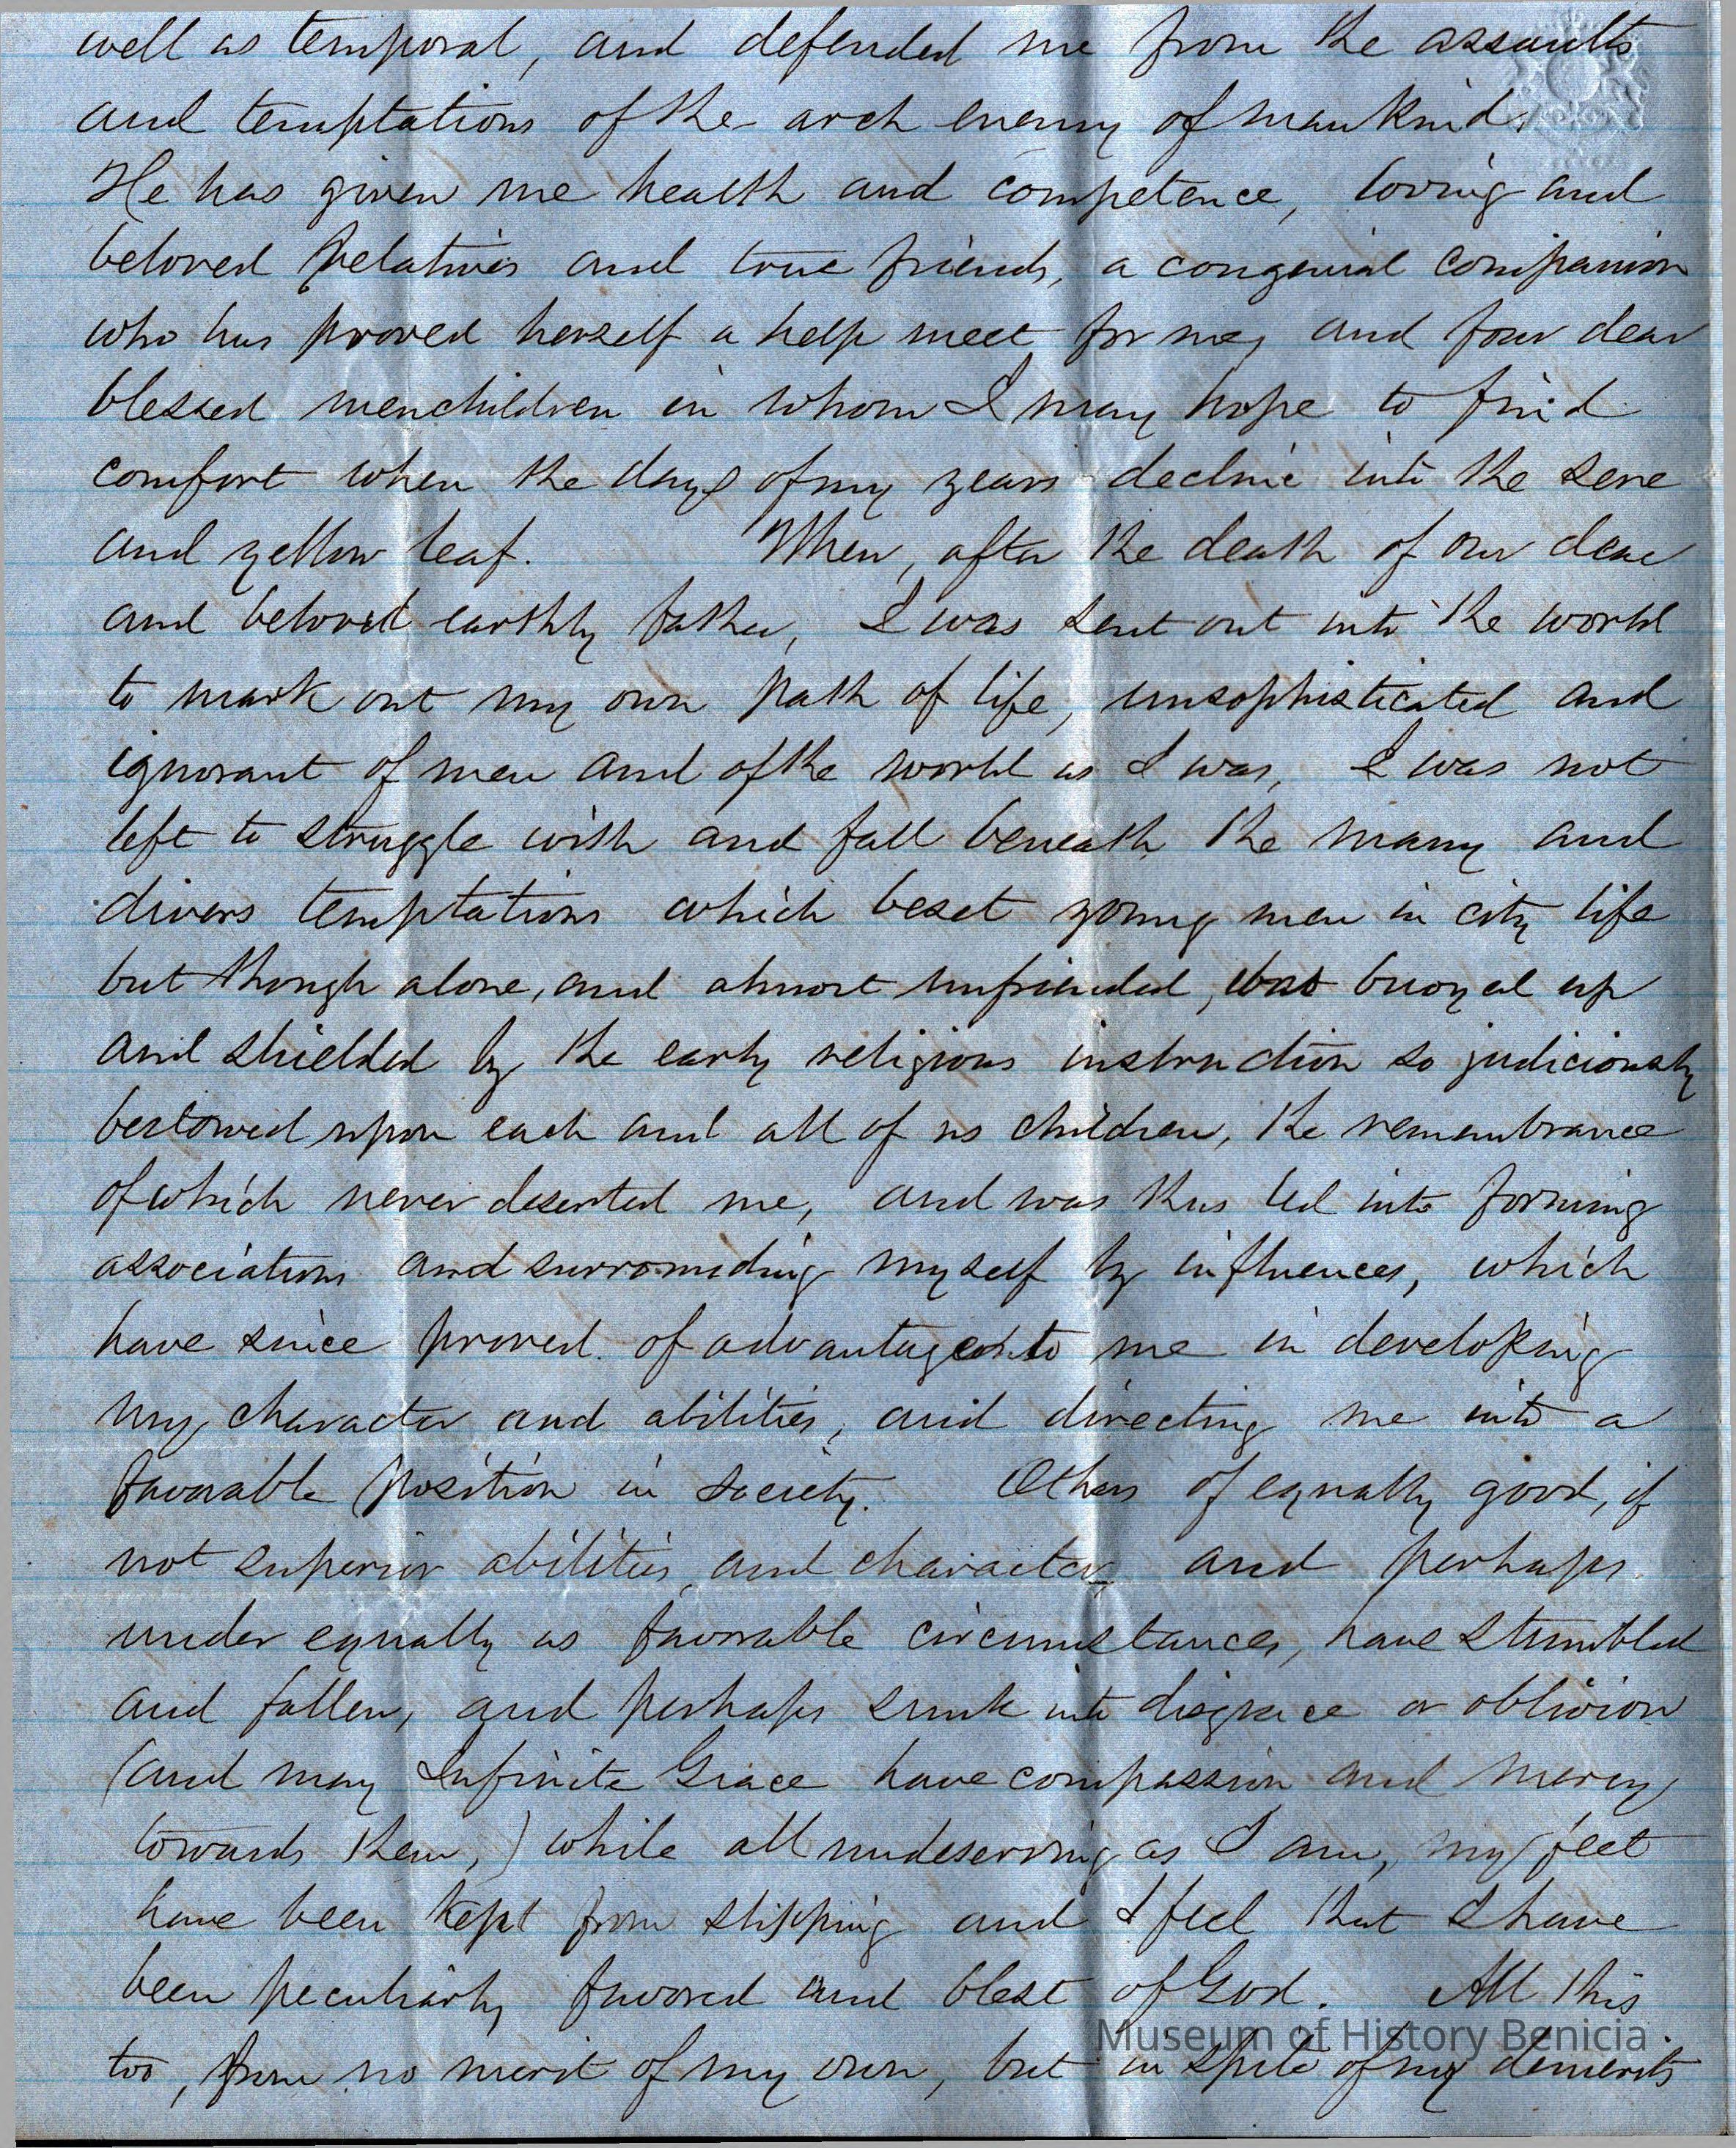 well as temporal, and defended me from the assaults
and temptations of the arch enemy of mankind.
He has given me health and competence, loving and
beloved relatives and true friends, a congenial companion
who has proved herself a help meet for me, and four dear
blessed menchildren in whom I may hope to find
comfort when the days of my years decline into the sere
and yellow leaf. When, after the death of our dear
and beloved earthly father, I was sent out into the world
to mark out my own path of life, unsophisticated and
ignorant of men and of the world as I was, I was not
left to struggle with and fall beneath the many and
divers temptations which beset young men in city life
but though alone, and almost unfriended, was buoyed up
and shielded by the early religious instruction so judiciously
bestowed upon each and all of us children, the remembrance
of which never deserted me, and was thus led into forming
associations and surrounding myself by influences, which
have since proved of advantage to me in developing
my character and abilities, and directing me into a
favorable position in society. Others of equally good, if
not superior abilities and character, and perhaps
under equally as favorable circumstances, have stumbled
and fallen, and perhaps sunk into disgrace or oblivion
(and may Infinite Grace have compassion and mercy
towards them,) while all undeserving as I am, my feet
have been kept from slipping and I feel that I have
been peculiarly favored and blest of God. All this
too, from no merit of my own, but in spite of my demerits
Museum of History Benicia